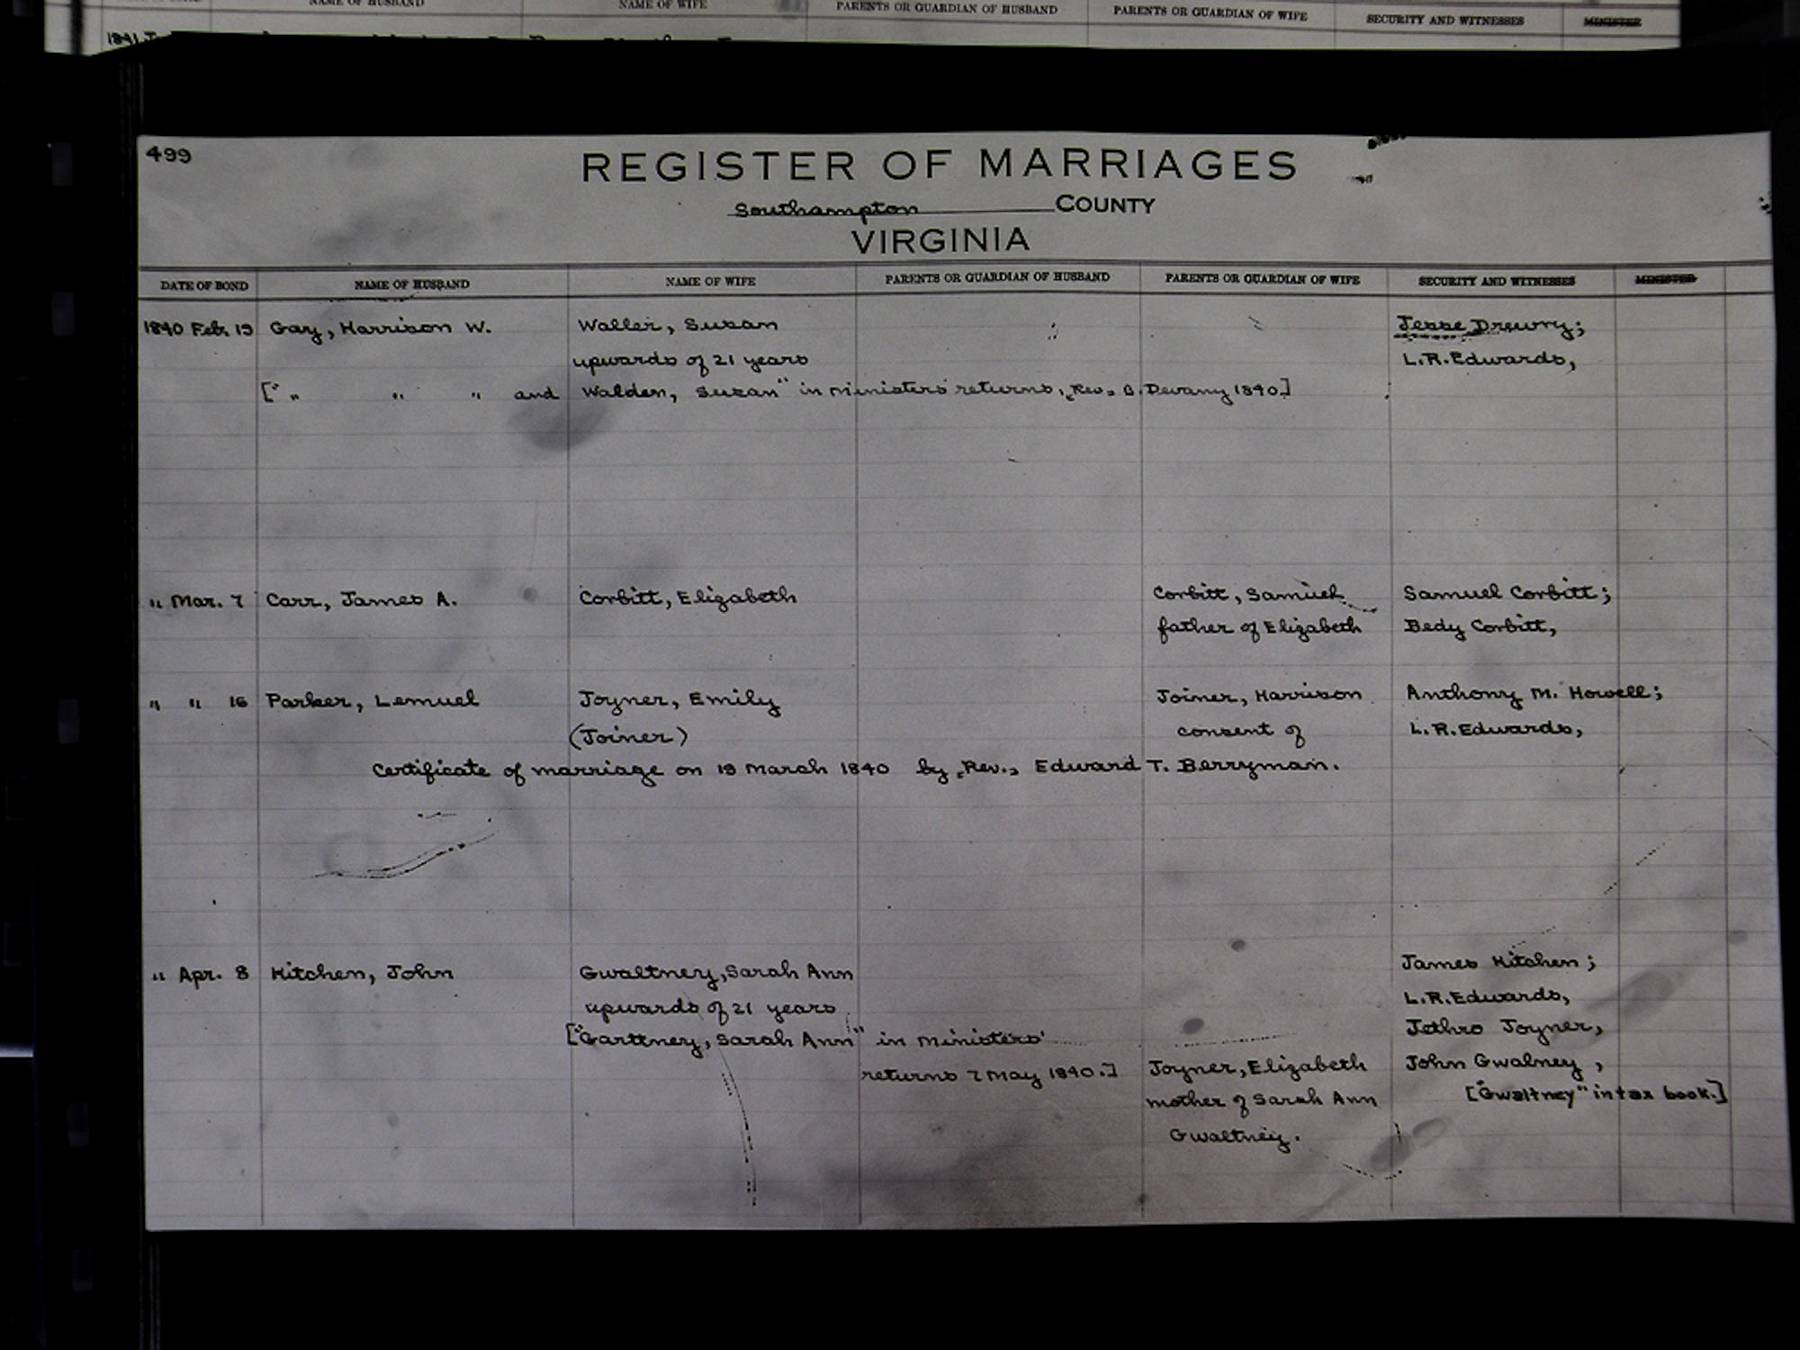 NAME OF HUSBAND NAME OF WIFE PARENTS OR GUARDIAN OF HUSBAND PARENTS OR GUARDIAN OF WIFE SECURITY AND WITNESSES MINISTER
1841
499
REGISTER OF MARRIAGES
Southampton COUNTY
VIRGINIA
DATE OF BOND NAME OF HUSBAND NAME OF WIFE PARENTS OR GUARDIAN OF HUSBAND PARENTS OR GUARDIAN OF WIFE SECURITY AND WITNESSES MINISTER
1840 Feb. 19 Gay, Harrison W. Waller, Susan Jesse Drewry;
upwards of 21 years L.R. Edwards,
[" " " " and Walden, Susan" in ministers' returns, Rev. B. Devany 1840.]
" Mar. 7 Carr, James A. Corbitt, Elizabeth Corbitt, Samuel Samuel Corbitt;
father of Elizabeth Bedy Corbitt,
" " 16 Parker, Lemuel Joyner, Emily Joiner, Harrison Anthony M. Howell;
(Joiner) consent of L.R. Edwards,
Certificate of marriage on 19 March 1840 by Rev. Edward T. Berryman.
" Apr. 8 Kitchen, John Gwaltney, Sarah Ann James Kitchen;
upwards of 21 years L.R. Edwards,
["Garttney, Sarah Ann" in ministers' Jethro Joyner,
returns 7 May 1840.] Joyner, Elizabeth John Gwalney,
mother of Sarah Ann ["Gwaltney" in tax book.]
Gwaltney.